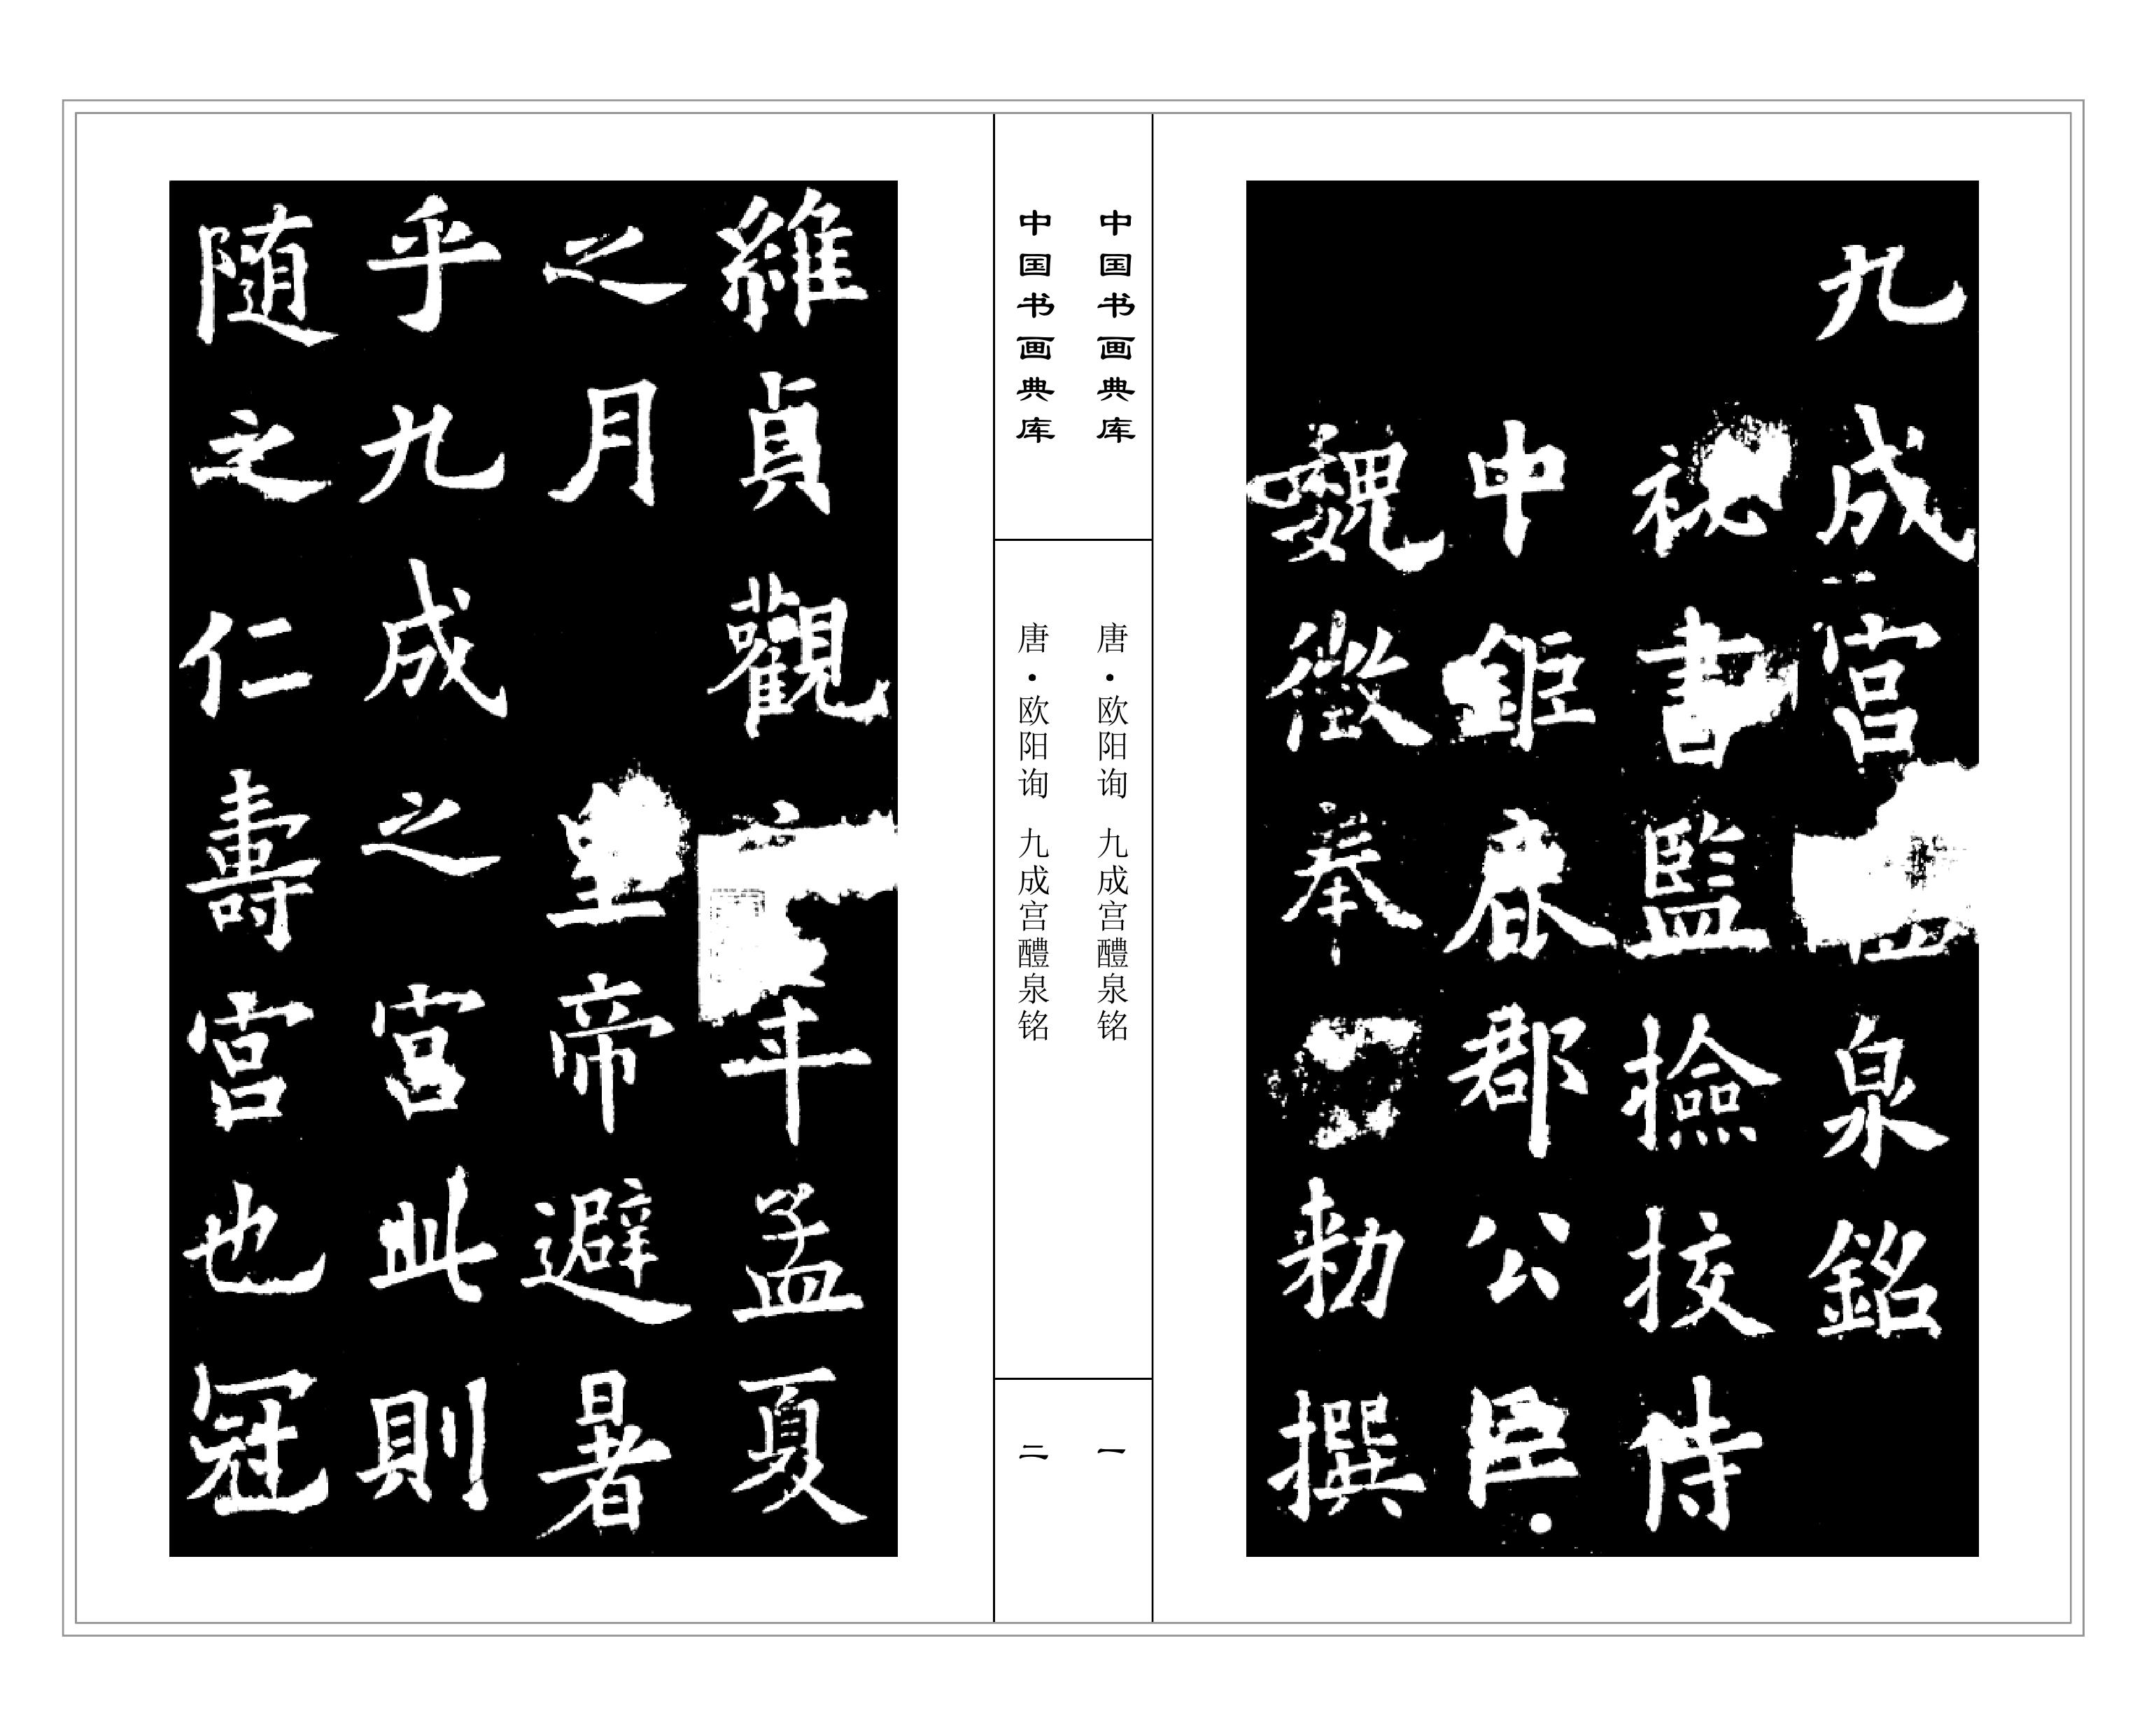 九成宮泉銘
秘書監撿挍侍
中鉅鹿郡公臣
魏徵奉勑撰
中国书画典库
唐·欧阳询 九成宫醴泉铭
一
中国书画典库
唐·欧阳询 九成宫醴泉铭
二
維貞觀年孟夏
之月皇帝避暑
乎九成之宮此則
随之仁壽宮也冠